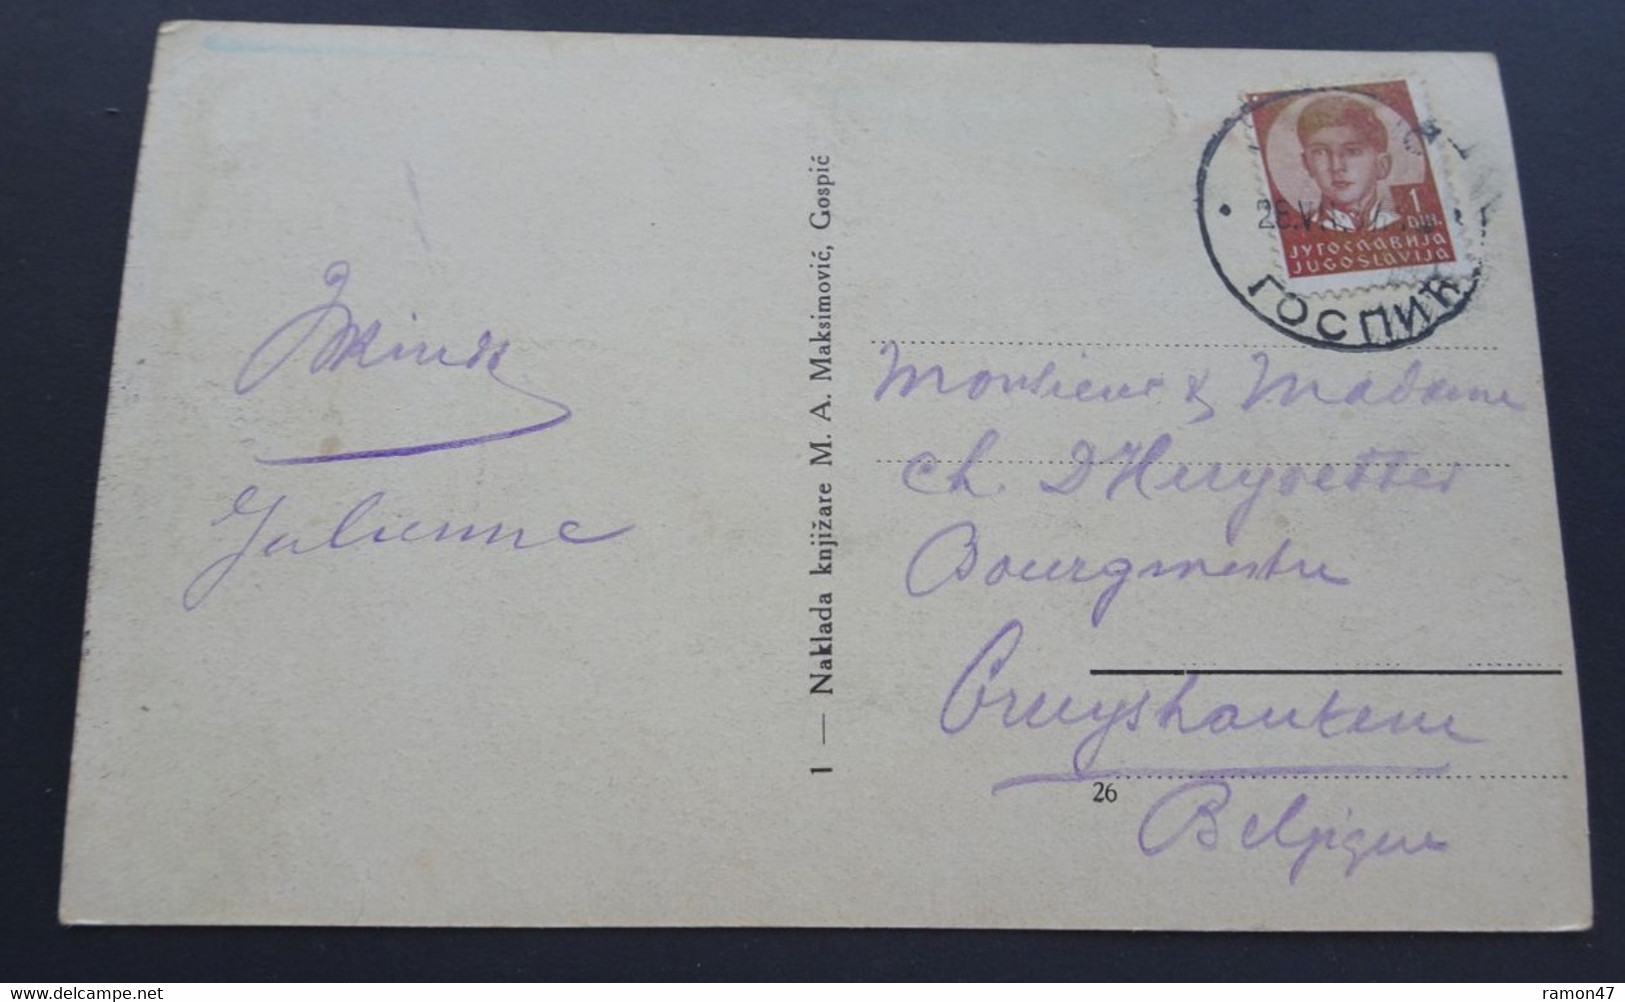 Julienne
1 — Naklada knjižare M. A. Maksimović, Gospić
1
DIN.
ЈУГОСЛАВИЈА
JUGOSLAVIJA
ГОСПИЋ
Monsieur & Madame
Ch. D'Huyvetter
Bourgmestre
Cruyshautem
26
Belgique
delcampe.net
ramon47